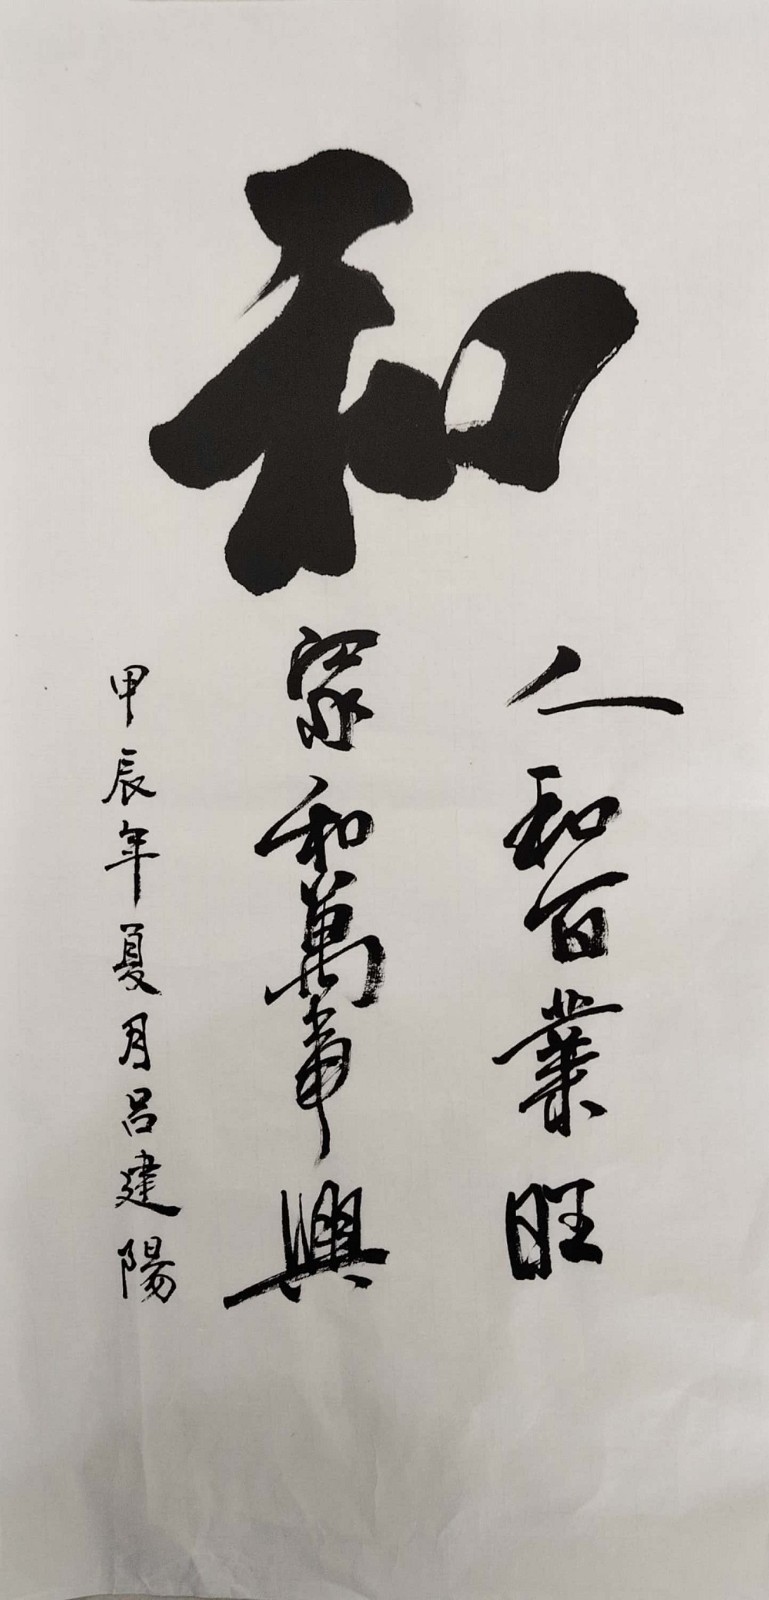 和
人和百業旺
家和萬事興
甲辰年夏月吕建陽